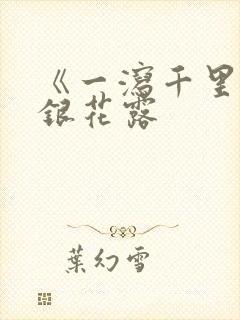 《一瀉千里
銀花露
葉幻雪